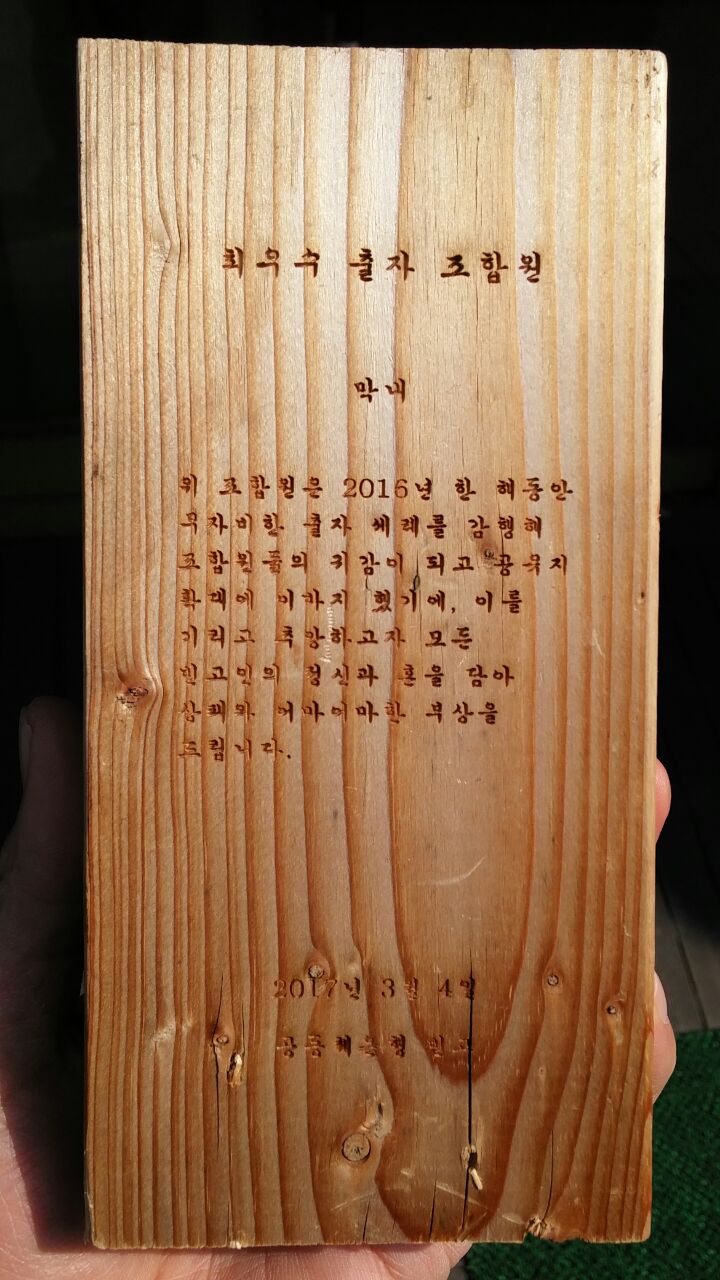 최우수 출자 조합원
막내
위 조합원은 2016년 한 해동안
무자비한 출자 세례를 감행해
조합원들의 귀감이 되고 공유지
확대에 이바지 했기에, 이를
기리고 추앙하고자 모든
빈고인의 정신과 혼을 담아
상패와 어마어마한 부상을
드립니다.
2017년 3월 4일
공동체은행 빈고